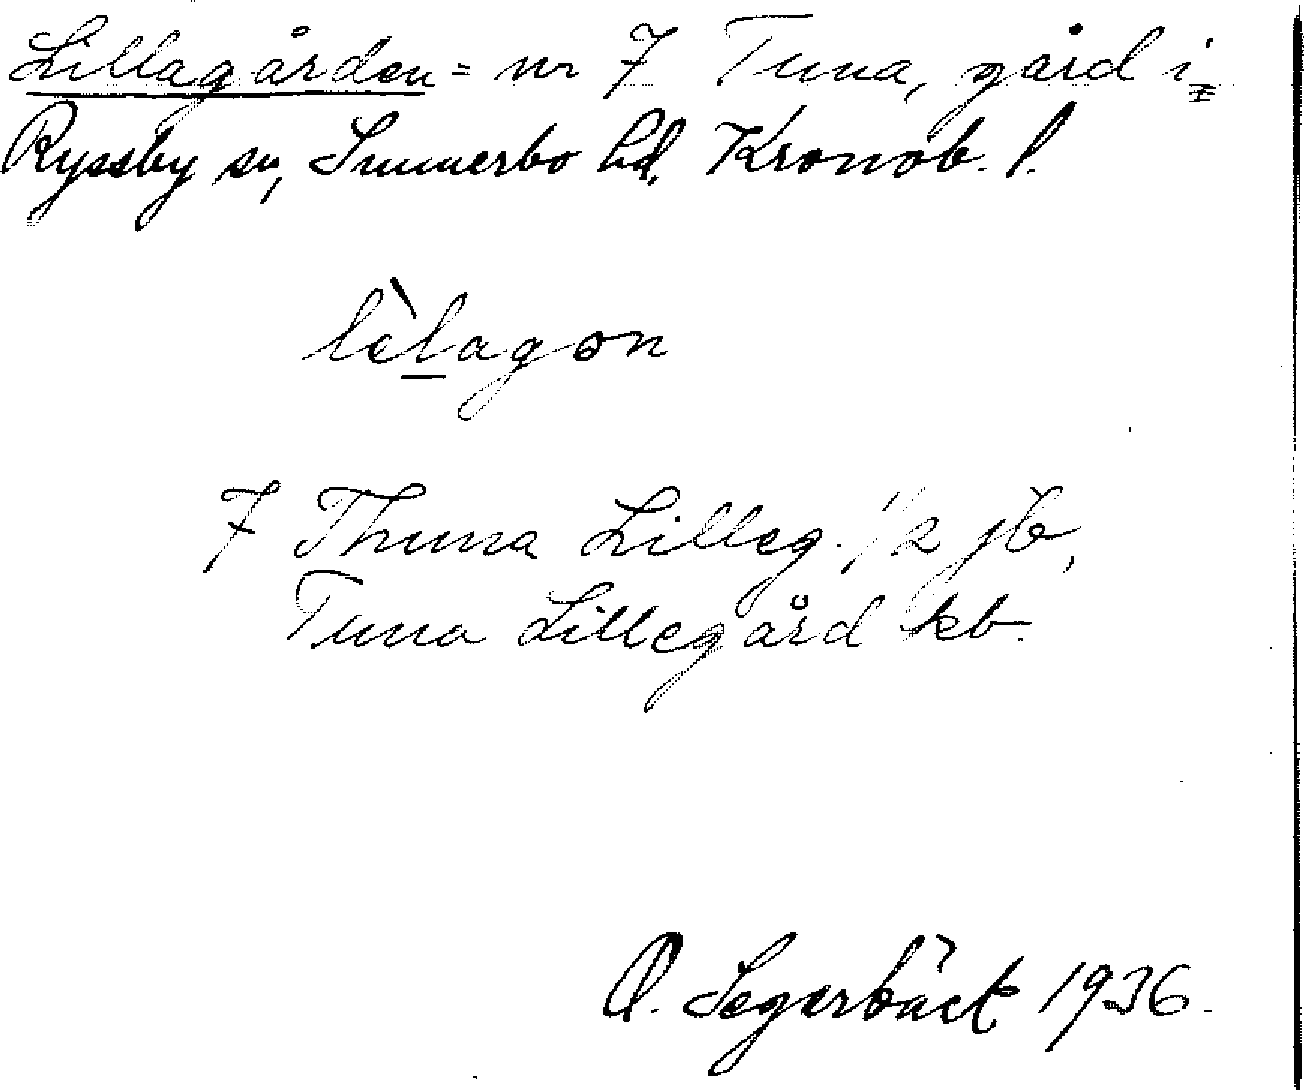 Lillagården = nr 7 Tuna, gård i
Ryssby sn, Sunnerbo hd, Kronob. l.
lèlagon
7 Thuna Lilleg. 1/2 jb,
Tuna Lillegård kb.
O. Segerbäck 1936.